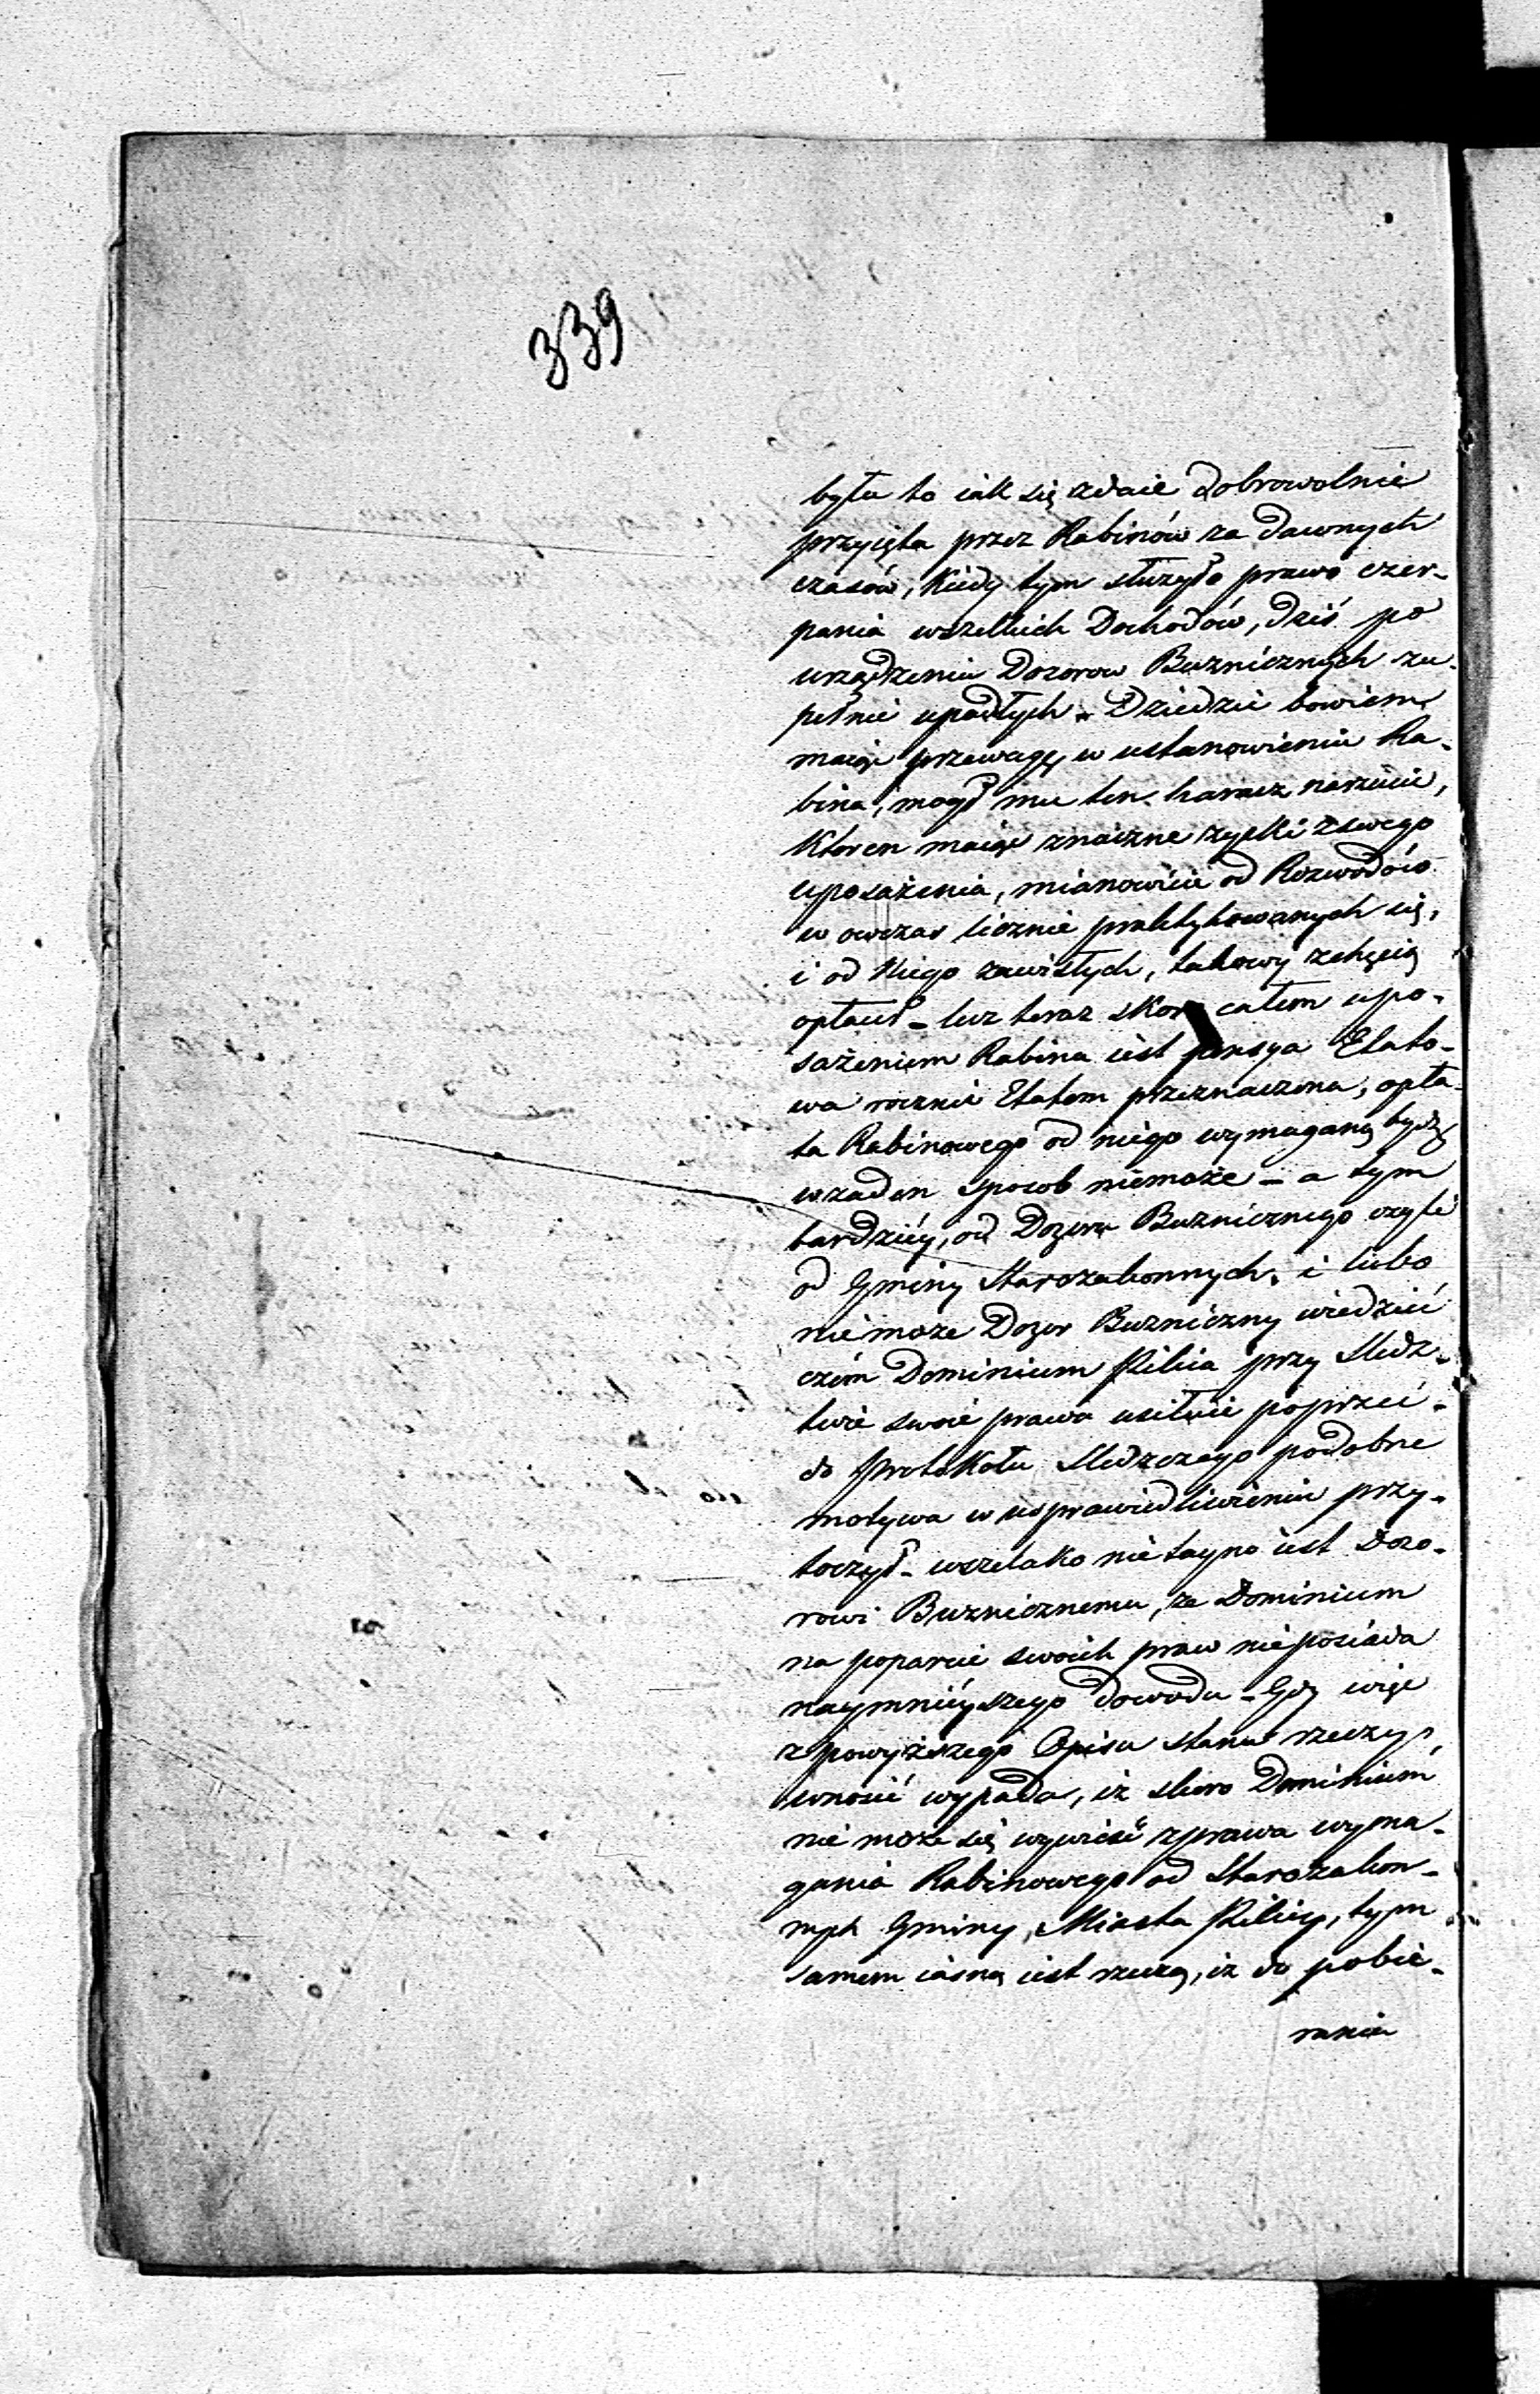 339
była to iak się zdaie dobrowolnie
przyięta przez Rabinów za dawnych
czasów, kiedy tym służyło prawo czer-
pania wszelkich Dochodów, dziś po
urządzeniu Dozorow Buzniczných zu-
pełnie upadłych - Dziedzic bowiem
maiąc przewagę w ustanowieniu Ra-
bina, mogł mu ten haracz narzucić,
ktoren maiąc znaczne zyski z swego
uposażenia, mianowicie od Rozwodów
w owczas licznie praktykowanych się,
i od Niego zawisłych, takowy z chęcią
opłacał - lecz teraz skoro całem upo-
sażeniem Rabina iest pensya Etato-
wa rocznie Etatem przeznaczona, opła-
ta Rabinowego od niego wymaganą bydz
wżaden sposob niemoże - a tym
bardziéy, od Dozoru Buznicznego czyli
od Gminy Starozakonnych, i lubo
nie może Dozor Buzniczny wiedzieć
czém Dominium Pilica przy Sledz-
twie swoie prawa usiłuie poprzeć -
do Protokołu Sledczego podobne
motywa w usprawiedliwieniu przy-
toczył - wszelako nie tayno iest Dozo-
rowi Buznicznemu, że Dominium
na poparcie swoich praw nieposiada
naymnieyszego dowodu - Gdy więc
z powyższego Opisu stanu rzeczy,
wnosić wypada, iż skoro Dominium
nie może się wywieść z prawa wyma-
gania Rabinowego od Starozakon-
nych Gminy, Miasta Pilicy, tym
samem iasną iest rzeczą, iż do pobie-
rania